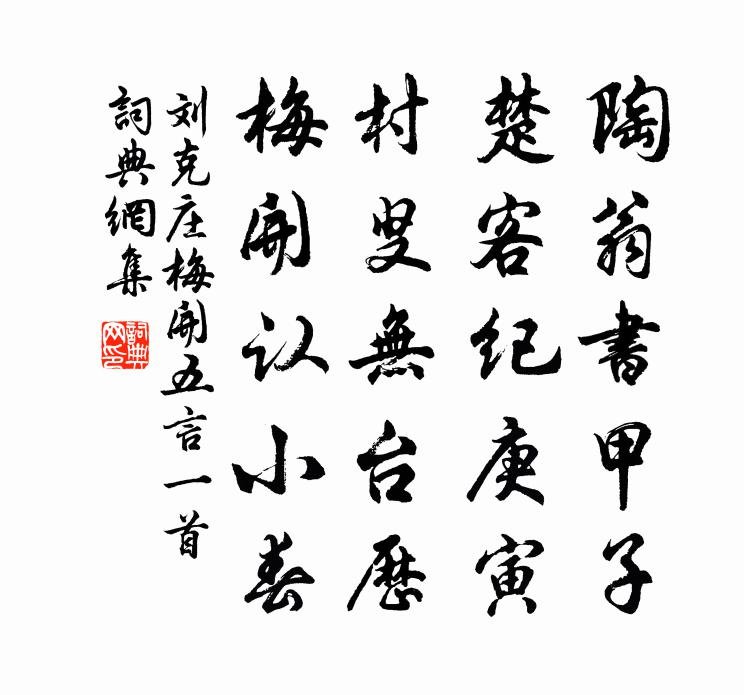 陶翁書甲子
楚客纪庚寅
村叟無台歷
梅開认小春
刘克庄梅開五言一首
詞典網集
詞典网印